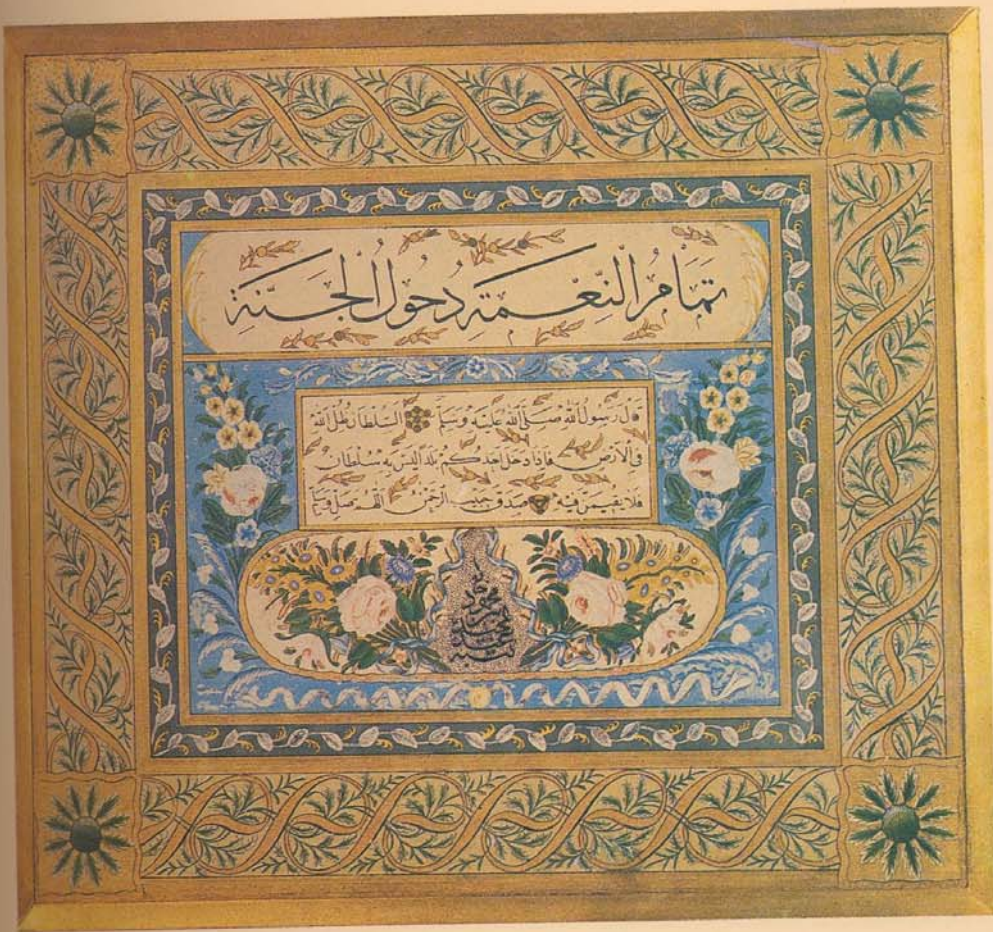 تَمَامُ النِّعْمَةِ دُخُولُ الْجَنَّةِ
قال رسول الله صلى الله عليه وسلم السلطان ظل الله
فى الارض فاذا دخل احدكم بلدا ليس به سلطان
فلا يقيمن فيه صدق حبيب الرحمن اللهم صل وسلم